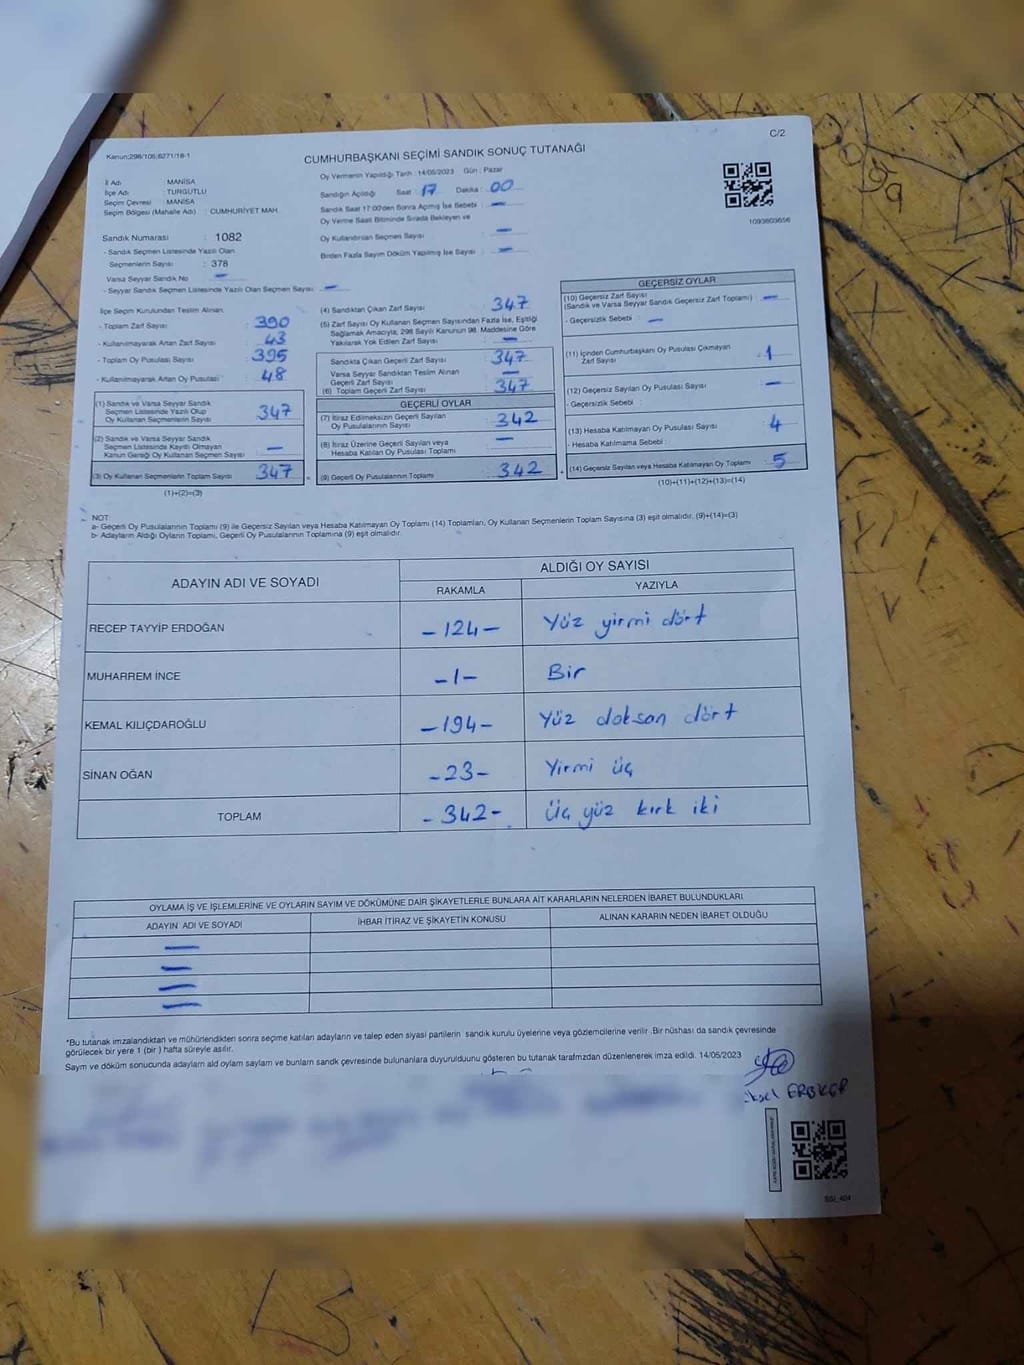 Kanun;298/105;6271/18-1
C/2
CUMHURBAŞKANI SEÇİMİ SANDIK SONUÇ TUTANAĞI
İl Adı : MANİSA
İlçe Adı : TURGUTLU
Seçim Çevresi : MANİSA
Seçim Bölgesi (Mahalle Adı) : CUMHURİYET MAH.
Sandık Numarası : 1082
- Sandık Seçmen Listesinde Yazılı Olan
Seçmenlerin Sayısı : 378
Varsa Seyyar Sandık No : —
- Seyyar Sandık Seçmen Listesinde Yazılı Olan Seçmen Sayısı : —
Oy Vermenin Yapıldığı Tarih : 14/05/2023 Gün : Pazar
Sandığın Açıldığı Saat : 17 Dakika : 00
Sandık Saat 17:00'den Sonra Açımış İse Sebebi : —
Oy Verme Saati Bitiminde Sırada Bekleyen ve
Oy Kullandırılan Seçmen Sayısı : —
Birden Fazla Sayım Döküm Yapılmış İse Sayısı : —
1093803656
İlçe Seçim Kurulundan Teslim Alınan
- Toplam Zarf Sayısı : 390
- Kullanılmayarak Artan Zarf Sayısı : 43
- Toplam Oy Pusulası Sayısı : 395
- Kullanılmayarak Artan Oy Pusulası : 48
(1) Sandık ve Varsa Seyyar Sandık
Seçmen Listesinde Yazılı Olup
Oy Kullanan Seçmenlerin Sayısı : 347
(2) Sandık ve Varsa Seyyar Sandık
Seçmen Listesinde Kayıtlı Olmayan
Kanun Gereği Oy Kullanan Seçmen Sayısı : —
(3) Oy Kullanan Seçmenlerin Toplam Sayısı : 347
(1)+(2)=(3)
(4) Sandıktan Çıkan Zarf Sayısı : 347
(5) Zarf Sayısı Oy Kullanan Seçmen Sayısından Fazla İse, Eşitliği
Sağlamak Amacıyla; 298 Sayılı Kanunun 98. Maddesine Göre
Yakılarak Yok Edilen Zarf Sayısı : —
Sandıkta Çıkan Geçerli Zarf Sayısı : 347
Varsa Seyyar Sandıktan Teslim Alınan
Geçerli Zarf Sayısı : —
(6) Toplam Geçerli Zarf Sayısı : 347
GEÇERLİ OYLAR
(7) İtiraz Edilmeksizin Geçerli Sayılan
Oy Pusulalarının Sayısı : 342
(8) İtiraz Üzerine Geçerli Sayılan veya
Hesaba Katılan Oy Pusulası Toplamı : —
(9) Geçerli Oy Pusulalarının Toplamı : 342
GEÇERSİZ OYLAR
(10) Geçersiz Zarf Sayısı
(Sandık ve Varsa Seyyar Sandık Geçersiz Zarf Toplamı) : —
- Geçersizlik Sebebi : —
(11) İçinden Cumhurbaşkanı Oy Pusulası Çıkmayan
Zarf Sayısı : 1
(12) Geçersiz Sayılan Oy Pusulası Sayısı : —
- Geçersizlik Sebebi :
(13) Hesaba Katılmayan Oy Pusulası Sayısı : 4
- Hesaba Katılmama Sebebi :
(14) Geçersiz Sayılan veya Hesaba Katılmayan Oy Toplamı : 5
(10)+(11)+(12)+(13)=(14)
NOT:
a- Geçerli Oy Pusulalarının Toplamı (9) ile Geçersiz Sayılan veya Hesaba Katılmayan Oy Toplamı (14) Toplamları, Oy Kullanan Seçmenlerin Toplam Sayısına (3) eşit olmalıdır. (9)+(14)=(3)
b- Adayların Aldığı Oyların Toplamı, Geçerli Oy Pusulalarının Toplamına (9) eşit olmalıdır.
ADAYIN ADI VE SOYADI
ALDIĞI OY SAYISI
RAKAMLA YAZIYLA
RECEP TAYYİP ERDOĞAN -124- Yüz yirmi dört
MUHARREM İNCE -1- Bir
KEMAL KILIÇDAROĞLU -194- Yüz doksan dört
SİNAN OĞAN -23- Yirmi üç
TOPLAM -342- Üç yüz kırk iki
OYLAMA İŞ VE İŞLEMLERİNE VE OYLARIN SAYIM VE DÖKÜMÜNE DAİR ŞİKAYETLERLE BUNLARA AİT KARARLARIN NELERDEN İBARET BULUNDUKLARI
ADAYIN ADI VE SOYADI İHBAR İTİRAZ VE ŞİKAYETİN KONUSU ALINAN KARARIN NEDEN İBARET OLDUĞU
*Bu tutanak imzalandıktan ve mühürlendikten sonra seçime katılan adayların ve talep eden siyasi partilerin sandık kurulu üyelerine veya gözlemcilerine verilir. Bir nüshası da sandık çevresinde
görülecek bir yere 1 (bir) hafta süreyle asılır.
Sayım ve döküm sonucunda adayların ald oyların sayların ve bunların sandk çevresinde bulunanlara duyurulduunu gösteren bu tutanak tarafmzdan düzenlenerek imza edildi. 14/05/2023